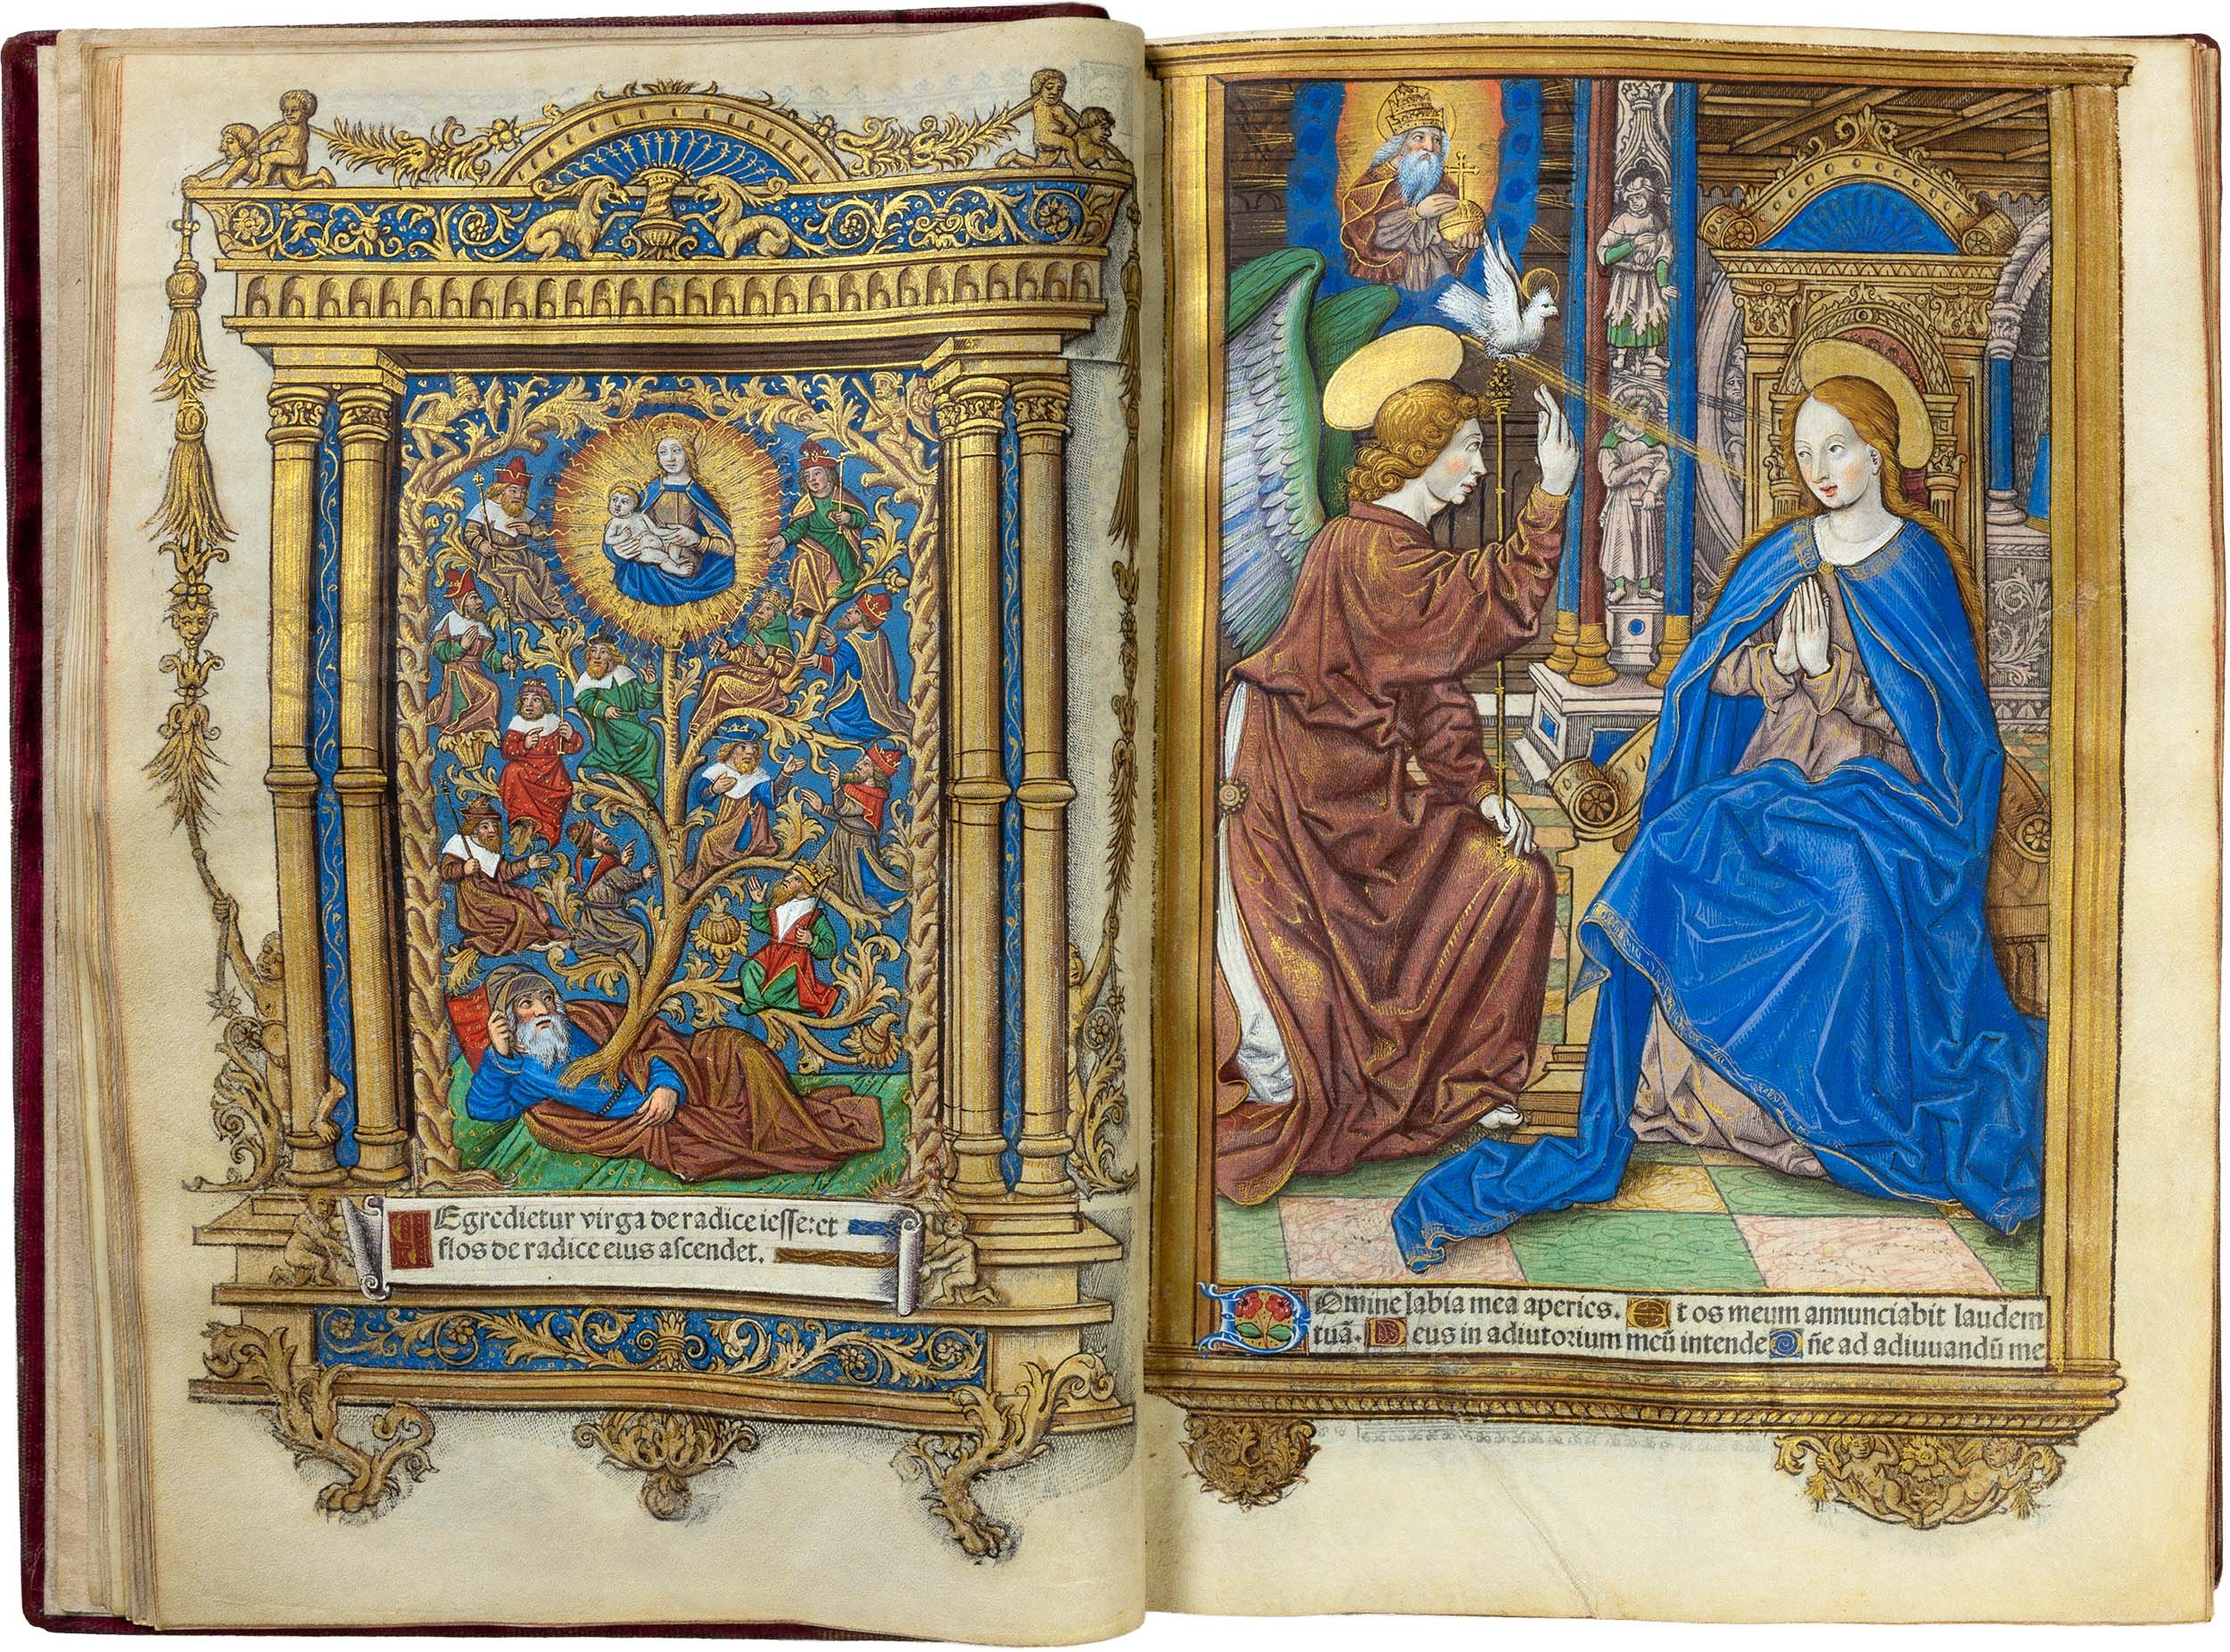 Egredietur virga de radice iesse: et
flos de radice eius ascendet.
Domine labia mea aperies. Et os meum annunciabit laudem
tuã. Deus in adiutorium meũ intende Dñe ad adiuuandũ me